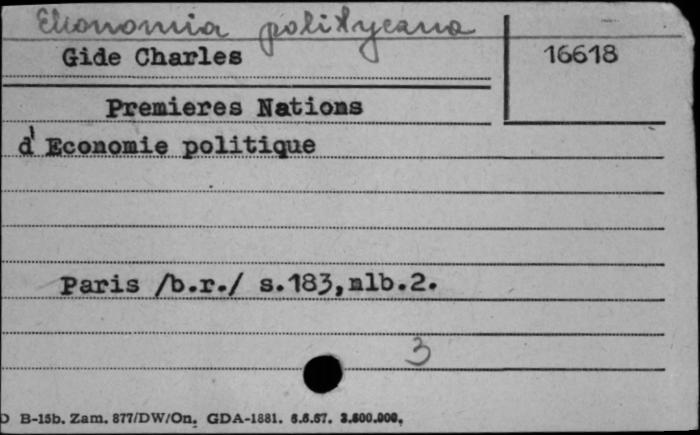 Ekonomia polityczna
Gide Charles
16618
Premieres Nations
d'Economie politique
Paris /b.r./ s.183,nlb.2.
3
D B-15b. Zam. 877/DW/On. GDA-1881. 6.6.67. 3.600.000.